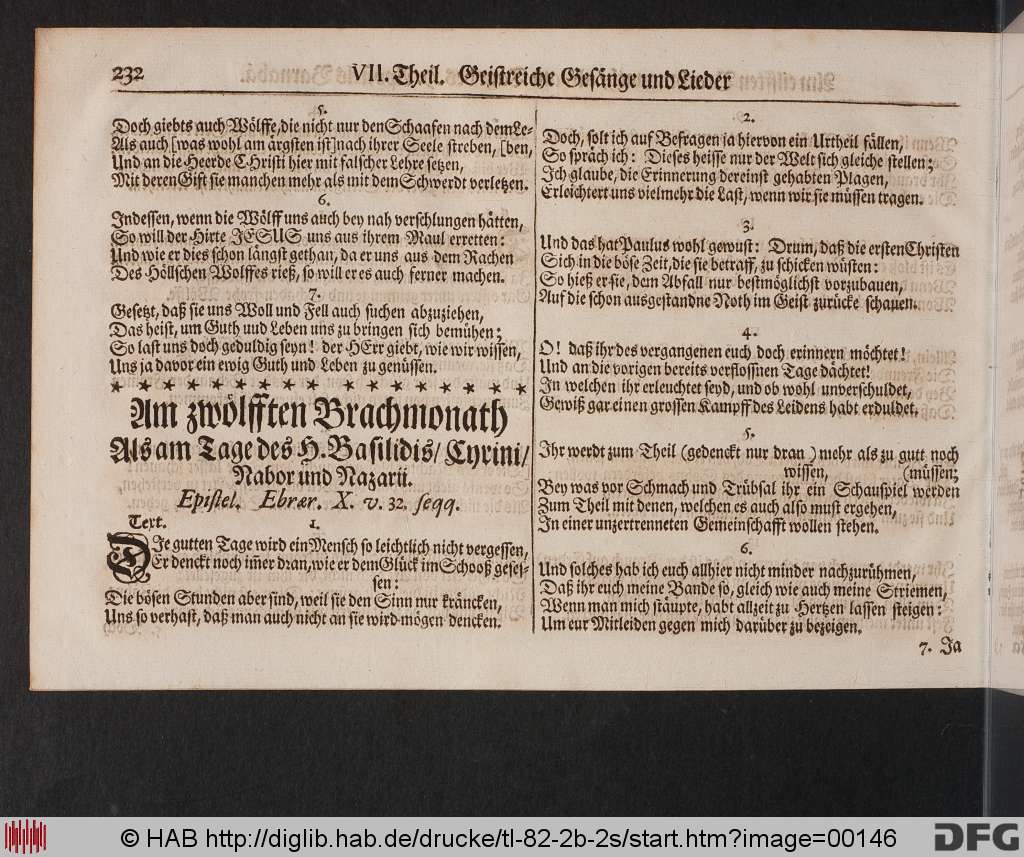 232 VII. Theil. Geistreiche Gesänge und Lieder
5.
Doch giebts auch Wölffe, die nicht nur den Schaafen nach dem Le-
Als auch [was wohl am ärgsten ist] nach ihrer Seele streben, [ben,
Und an die Heerde Christi hier mit falscher Lehre setzen,
Mit deren Gift sie manchen mehr als mit dem Schwerdt verletzen.
6.
Indessen, wenn die Wölff uns auch bey nah verschlungen hätten,
So will der Hirte JESUS uns aus ihrem Maul erretten:
Und wie er dies schon längst gethan, da er uns aus dem Rachen
Des Höllschen Wolffes rieß, so will er es auch ferner machen.
7.
Gesetzt, daß sie uns Woll und Fell auch suchen abzuziehen,
Das heist, um Guth uud Leben uns zu bringen sich bemühen;
So last uns doch geduldig seyn! der HErr giebt, wie wir wissen,
Uns ja davor ein ewig Guth und Leben zu genüssen.
* * * * * * * * * * * * * * * * * * *
Am zwölfften Brachmonath
Als am Tage des H. Basilidis/ Cyrini/
Nabor und Nazarii.
Epistel. Ebrær. X. v. 32. seqq.
Text. 1.
DIe gutten Tage wird ein Mensch so leichtlich nicht vergessen,
Er denckt noch im̃er dran, wie er dem Glück im Schooß geses-
sen:
Die bösen Stunden aber sind, weil sie den Sinn nur kräncken,
Uns so verhast, daß man auch nicht an sie wird mögen dencken.
2.
Doch, solt ich auf Befragen ja hiervon ein Urtheil fällen,
So spräch ich: Dieses heisse nur der Welt sich gleiche stellen;
Ich glaube, die Erinnerung dereinst gehabten Plagen,
Erleichtert uns vielmehr die Last, wenn wir sie müssen tragen.
3.
Und das hat Paulus wohl gewust: Drum, daß die ersten Christen
Sich in die böse Zeit, die sie betraff, zu schicken wüsten:
So hieß er sie, dem Abfall nur bestmöglichst vorzubauen,
Auf die schon ausgestandne Noth im Geist zurücke schauen.
4.
O! daß ihr des vergangenen euch doch erinnern möchtet!
Und an die vorigen bereits verflossnen Tage dächtet!
In welchen ihr erleuchtet seyd, und ob wohl unverschuldet,
Gewiß gar einen grossen Kampff des Leidens habt erduldet.
5.
Ihr werdt zum Theil (gedenckt nur dran) mehr als zu gutt noch
wissen, (müssen;
Bey was vor Schmach und Trübsal ihr ein Schauspiel werden
Zum Theil mit denen, welchen es auch also must ergehen,
In einer unzertrenneten Gemeinschafft wollen stehen.
6.
Und solches hab ich euch allhier nicht minder nachzurühmen,
Daß ihr euch meine Bande so, gleich wie auch meine Striemen,
Wenn man mich stäupte, habt allzeit zu Hertzen lassen steigen:
Um eur Mitleiden gegen mich darüber zu bezeigen.
7. Ja
© HAB http://diglib.hab.de/drucke/tl-82-2b-2s/start.htm?image=00146
DFG